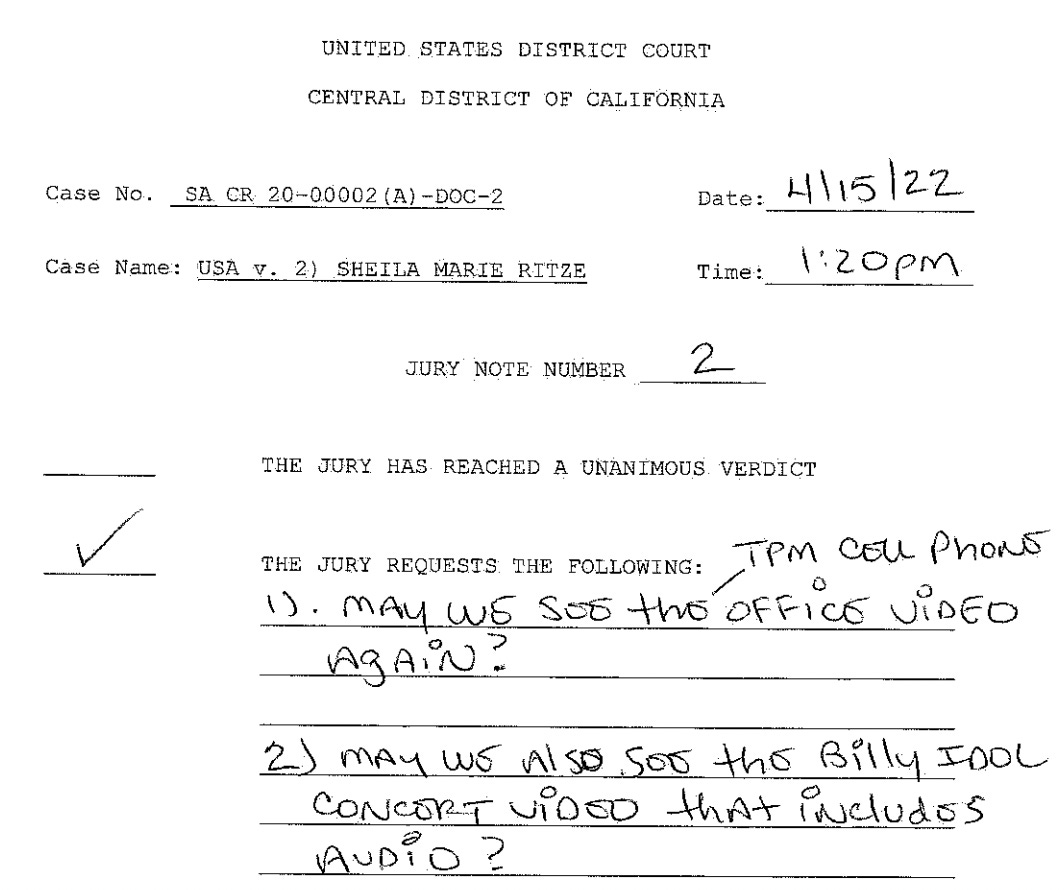 UNITED STATES DISTRICT COURT
CENTRAL DISTRICT OF CALIFORNIA
Case No. SA CR 20-00002(A)-DOC-2 Date: 4/15/22
Case Name: USA v. 2) SHEILA MARIE RITZE Time: 1:20pm
JURY NOTE NUMBER 2
THE JURY HAS REACHED A UNANIMOUS VERDICT
✓ THE JURY REQUESTS THE FOLLOWING: TPM CELL PHONE
1). MAY WE SEE the OFFICE VIDEO
AgAiN?
2) MAY WE Also SEE the Billy IDOL
CONCERT VIDEO thAt iNcludES
AUDiO?